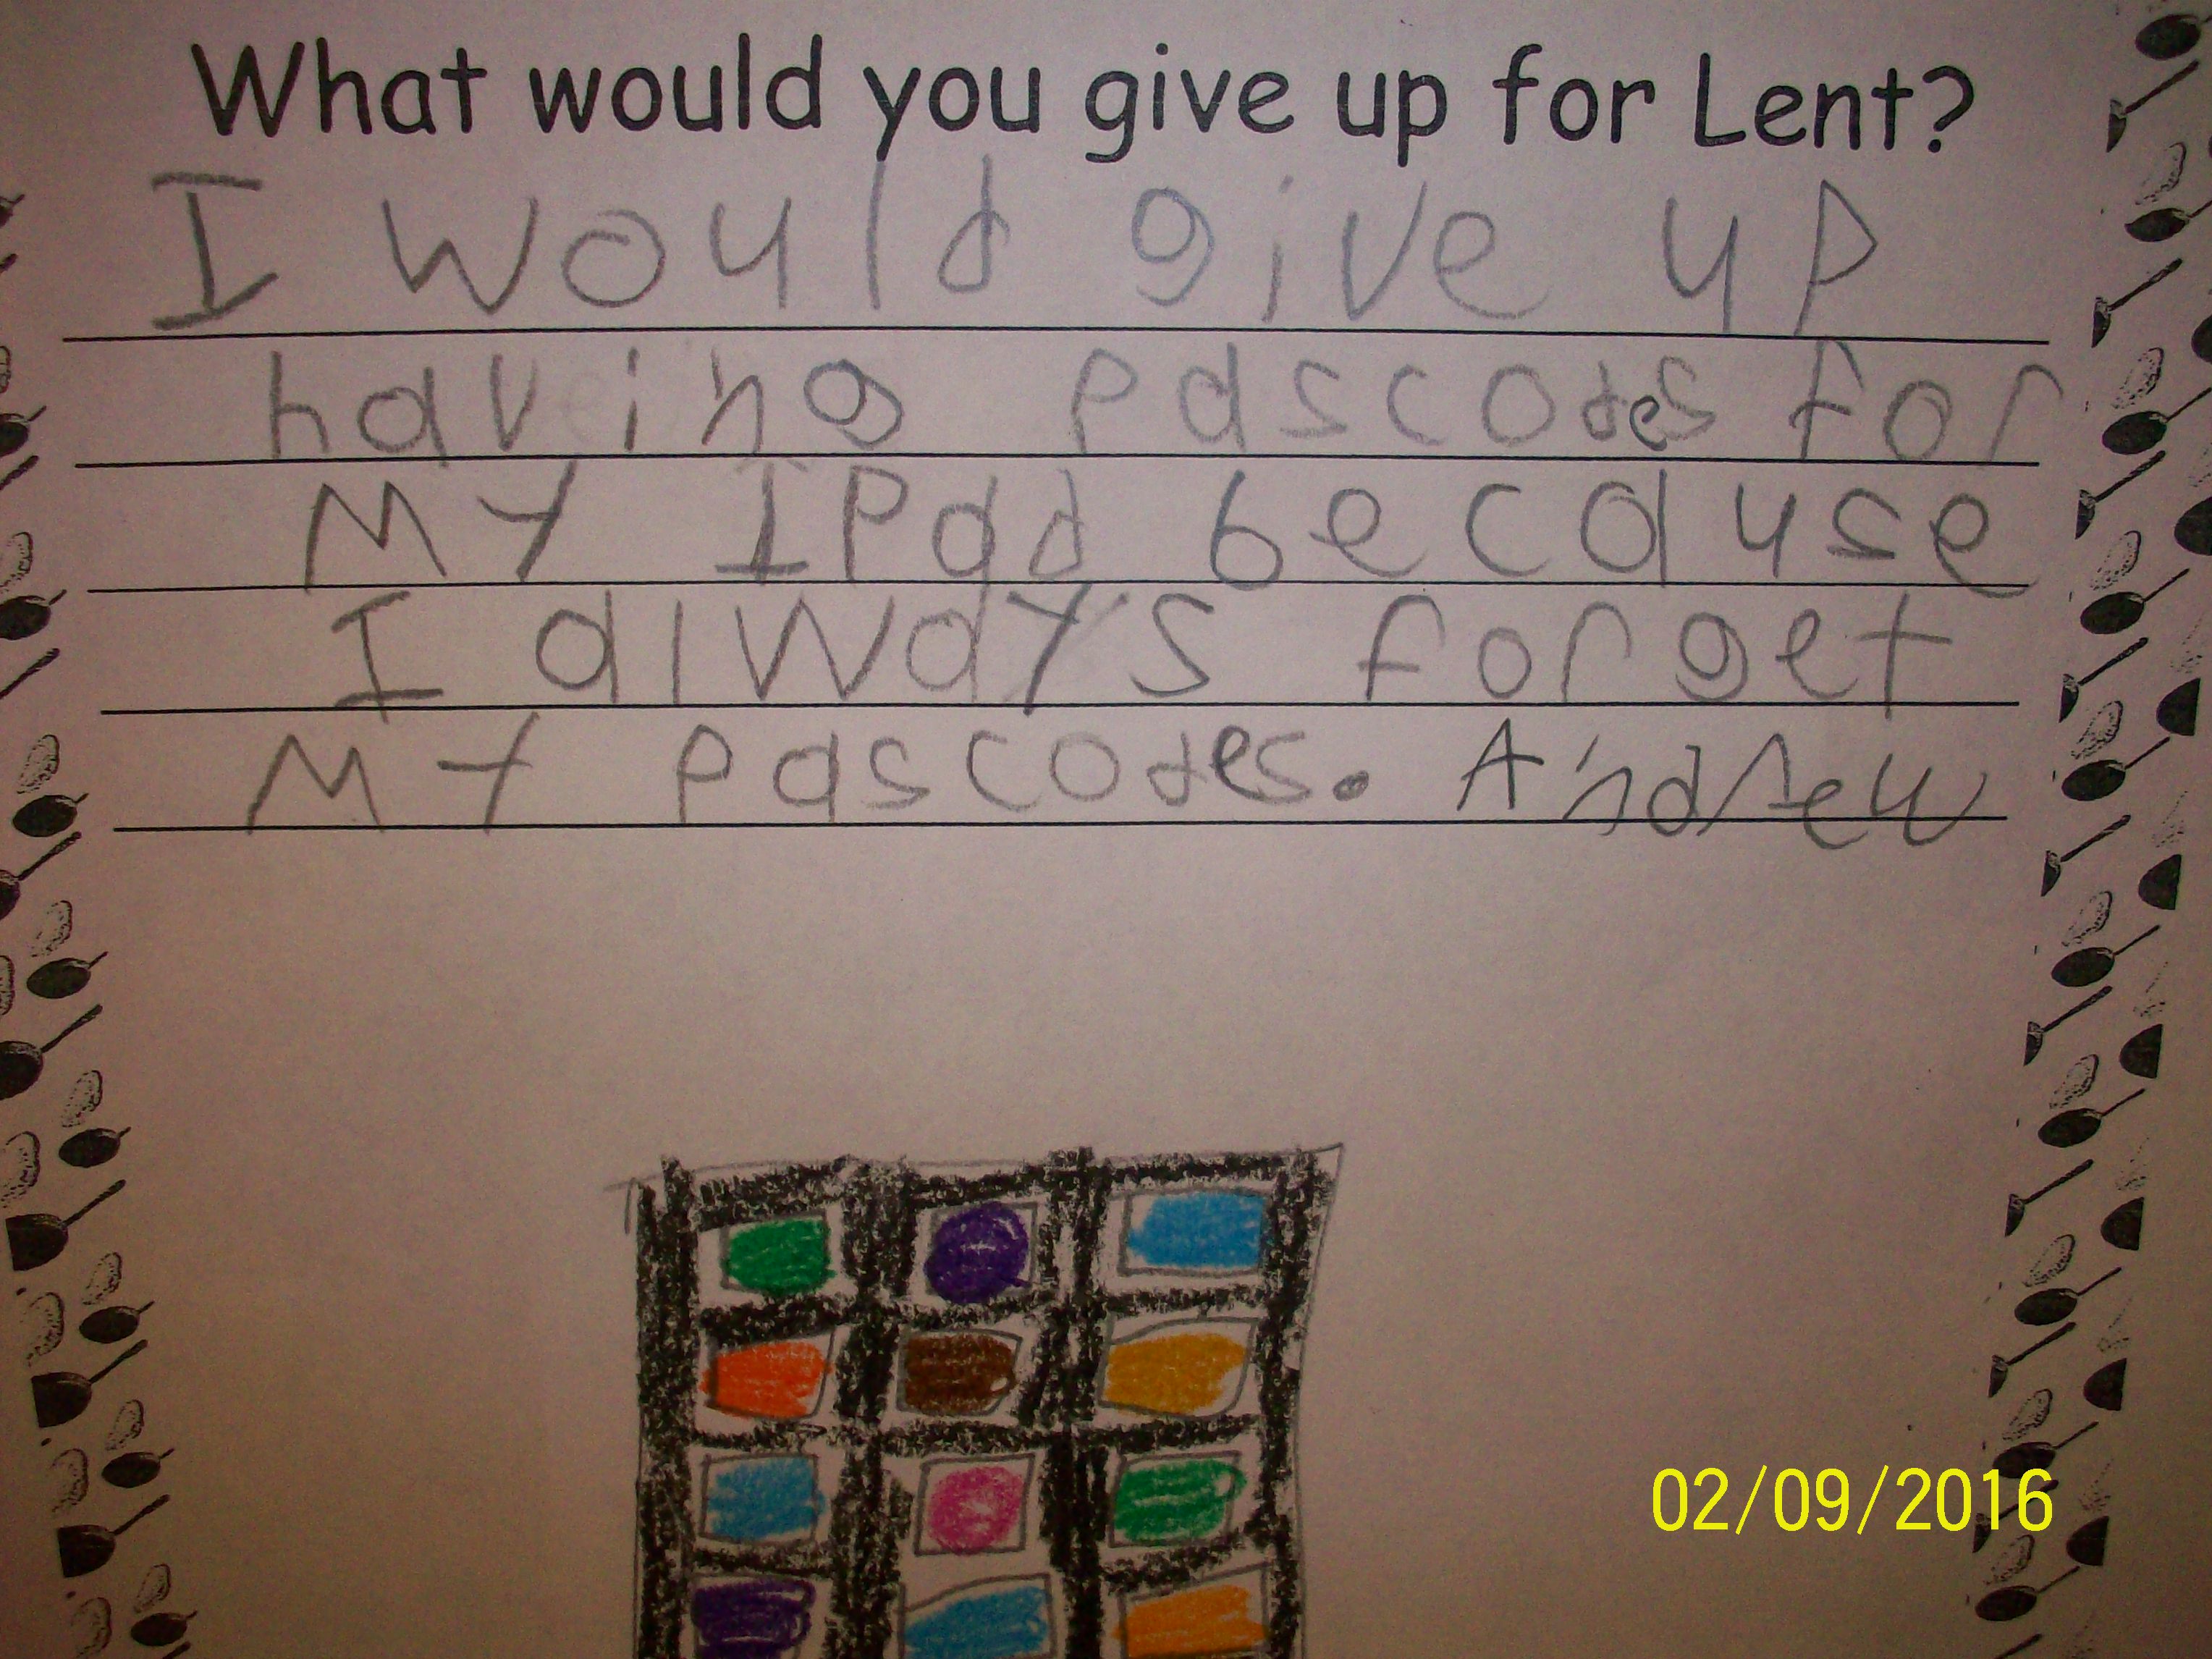 What would you give up for Lent?
I would give up
having pascodes for
My IPad because
I always forget
My pascodes. Andrew
02/09/2016